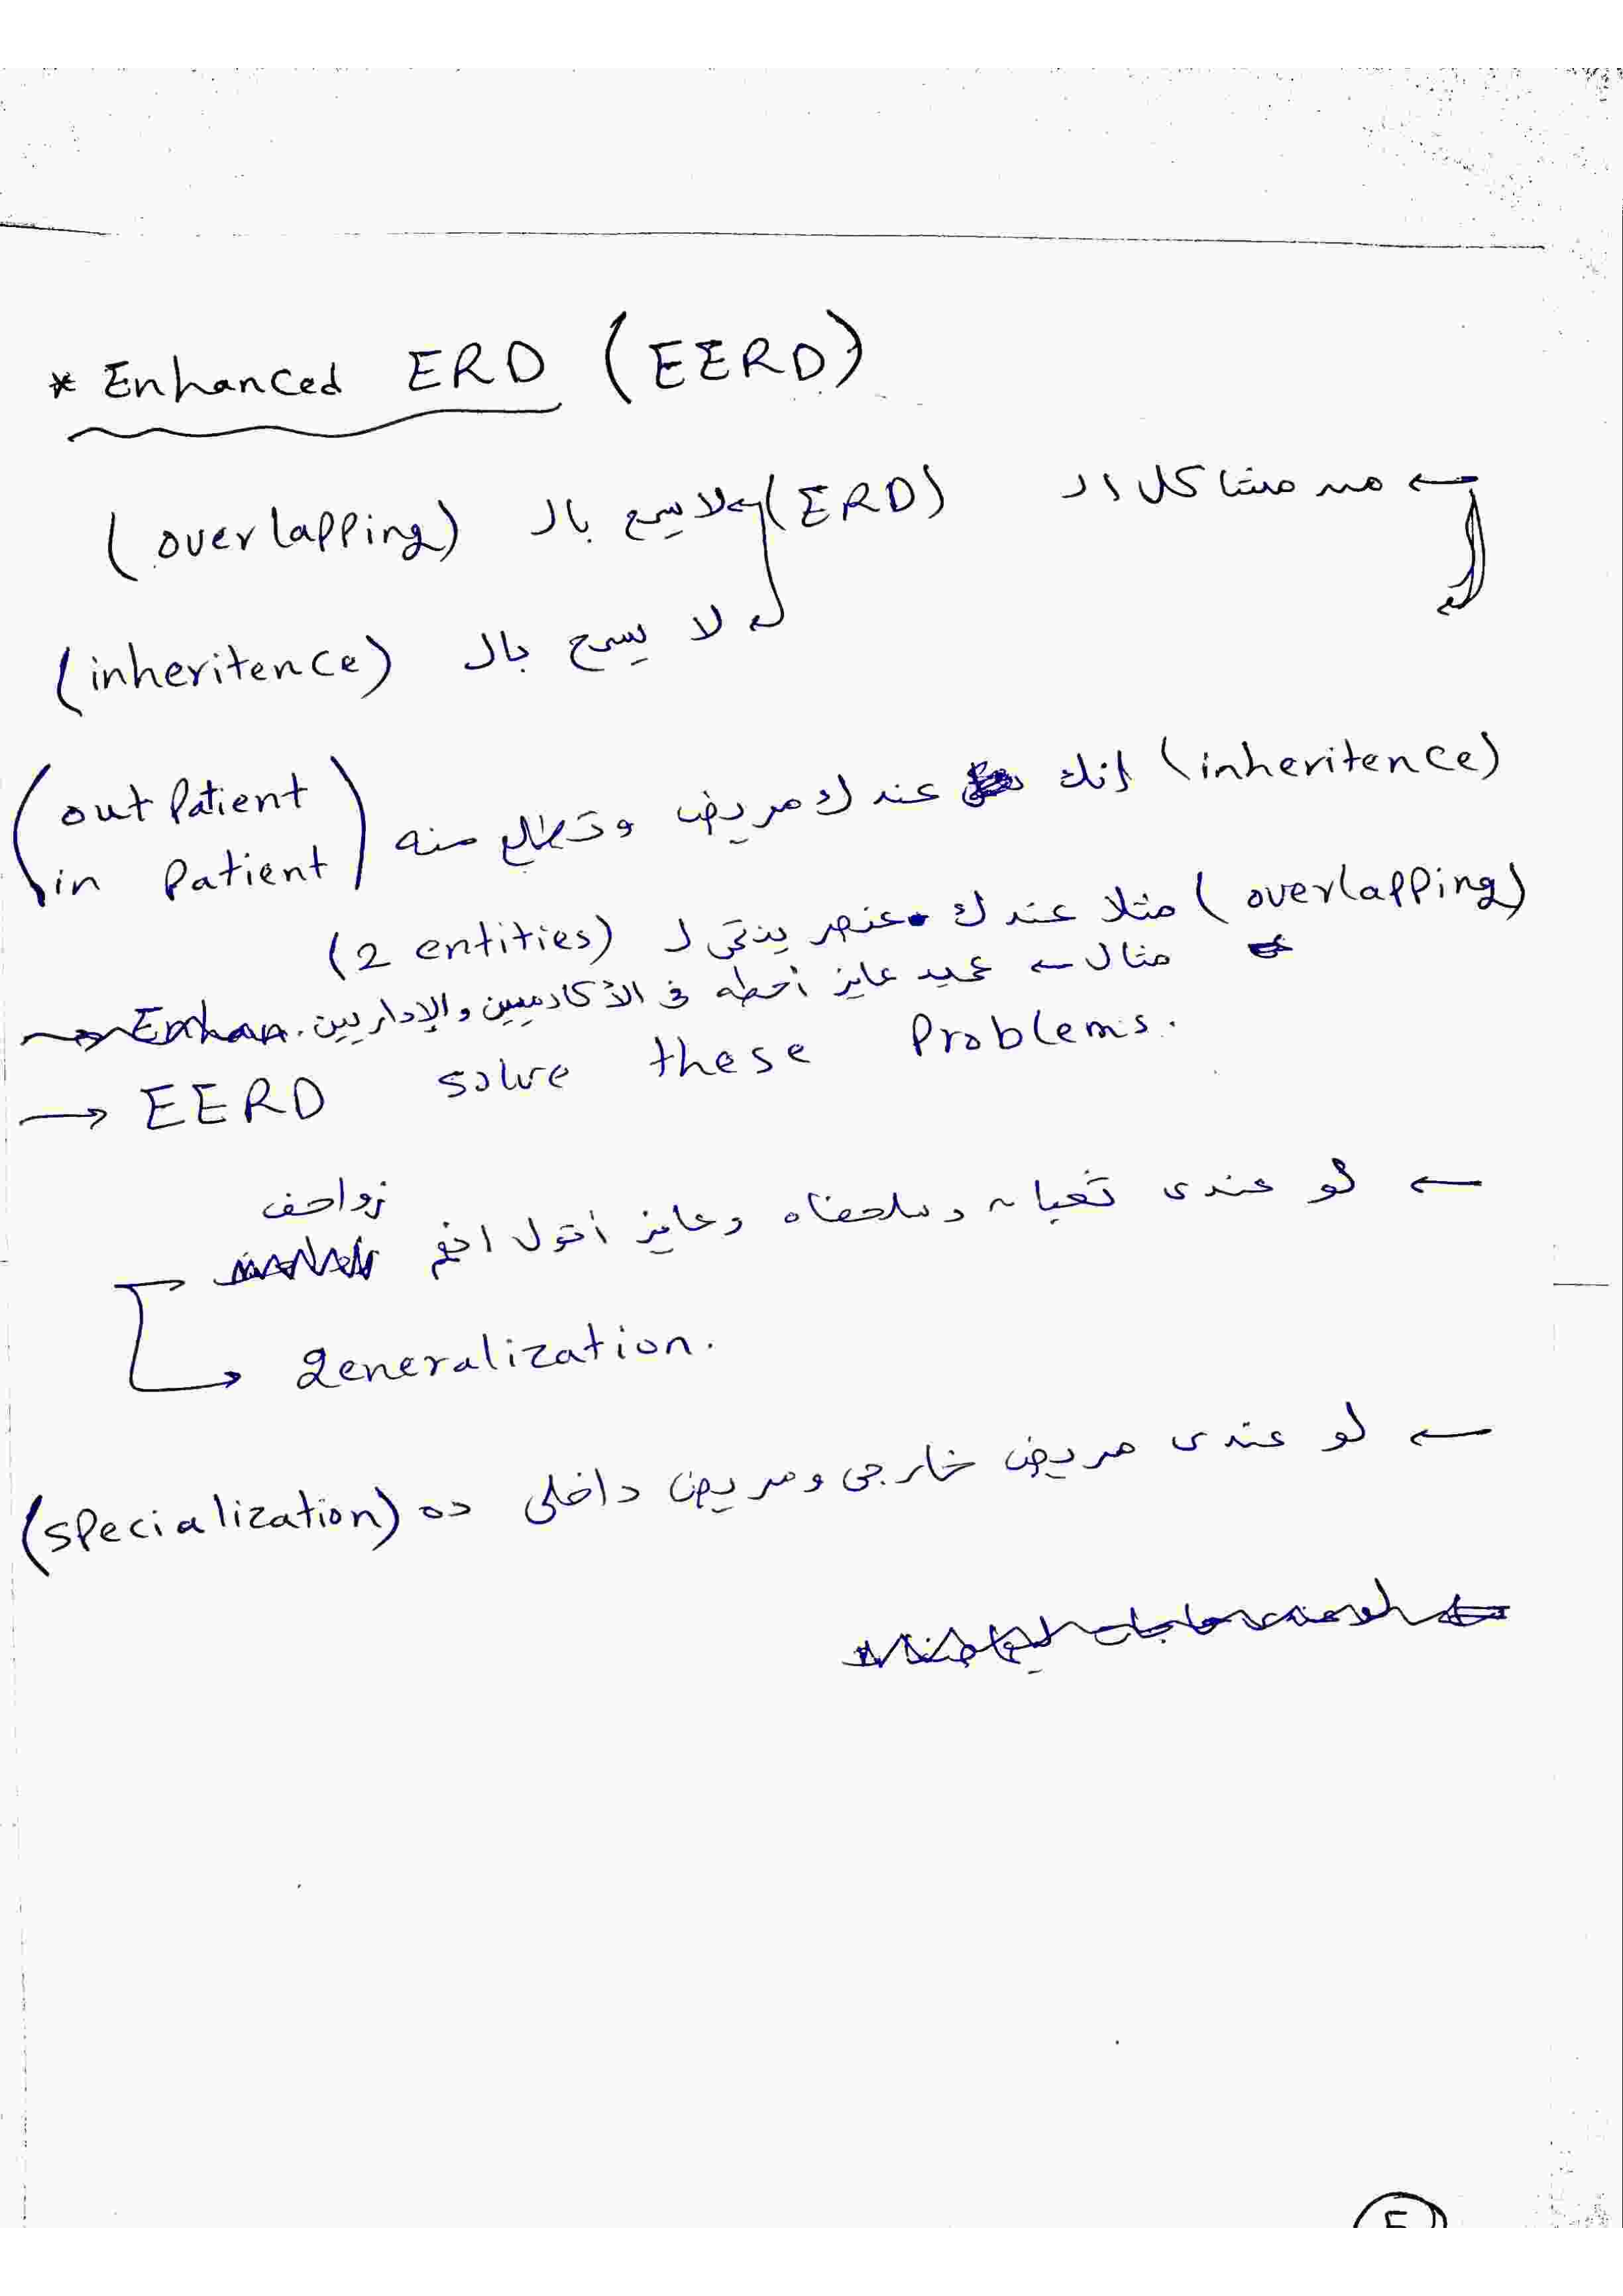 * Enhanced ERD (EERD)
← من مشاكل ال (ERD) ← لا يسمح بال (overlapping)
← لا يسمح بال (inheritence)
(inheritence) إنك عندك مريض وتطلع منه (out Patient in Patient)
(overlapping) مثلا عندك عنصر ينتمى ل (2 entities)
مثال ← عميد عايز أحطه فى الأكادميين والإداريين.
→ EERD solve these Problems.
← لو عندى تعبان وسلحفاه وعايز أقول انهم زواحف
→ generalization.
← لو عندى مريض خارجى ومريض داخلى ده (specialization)
5